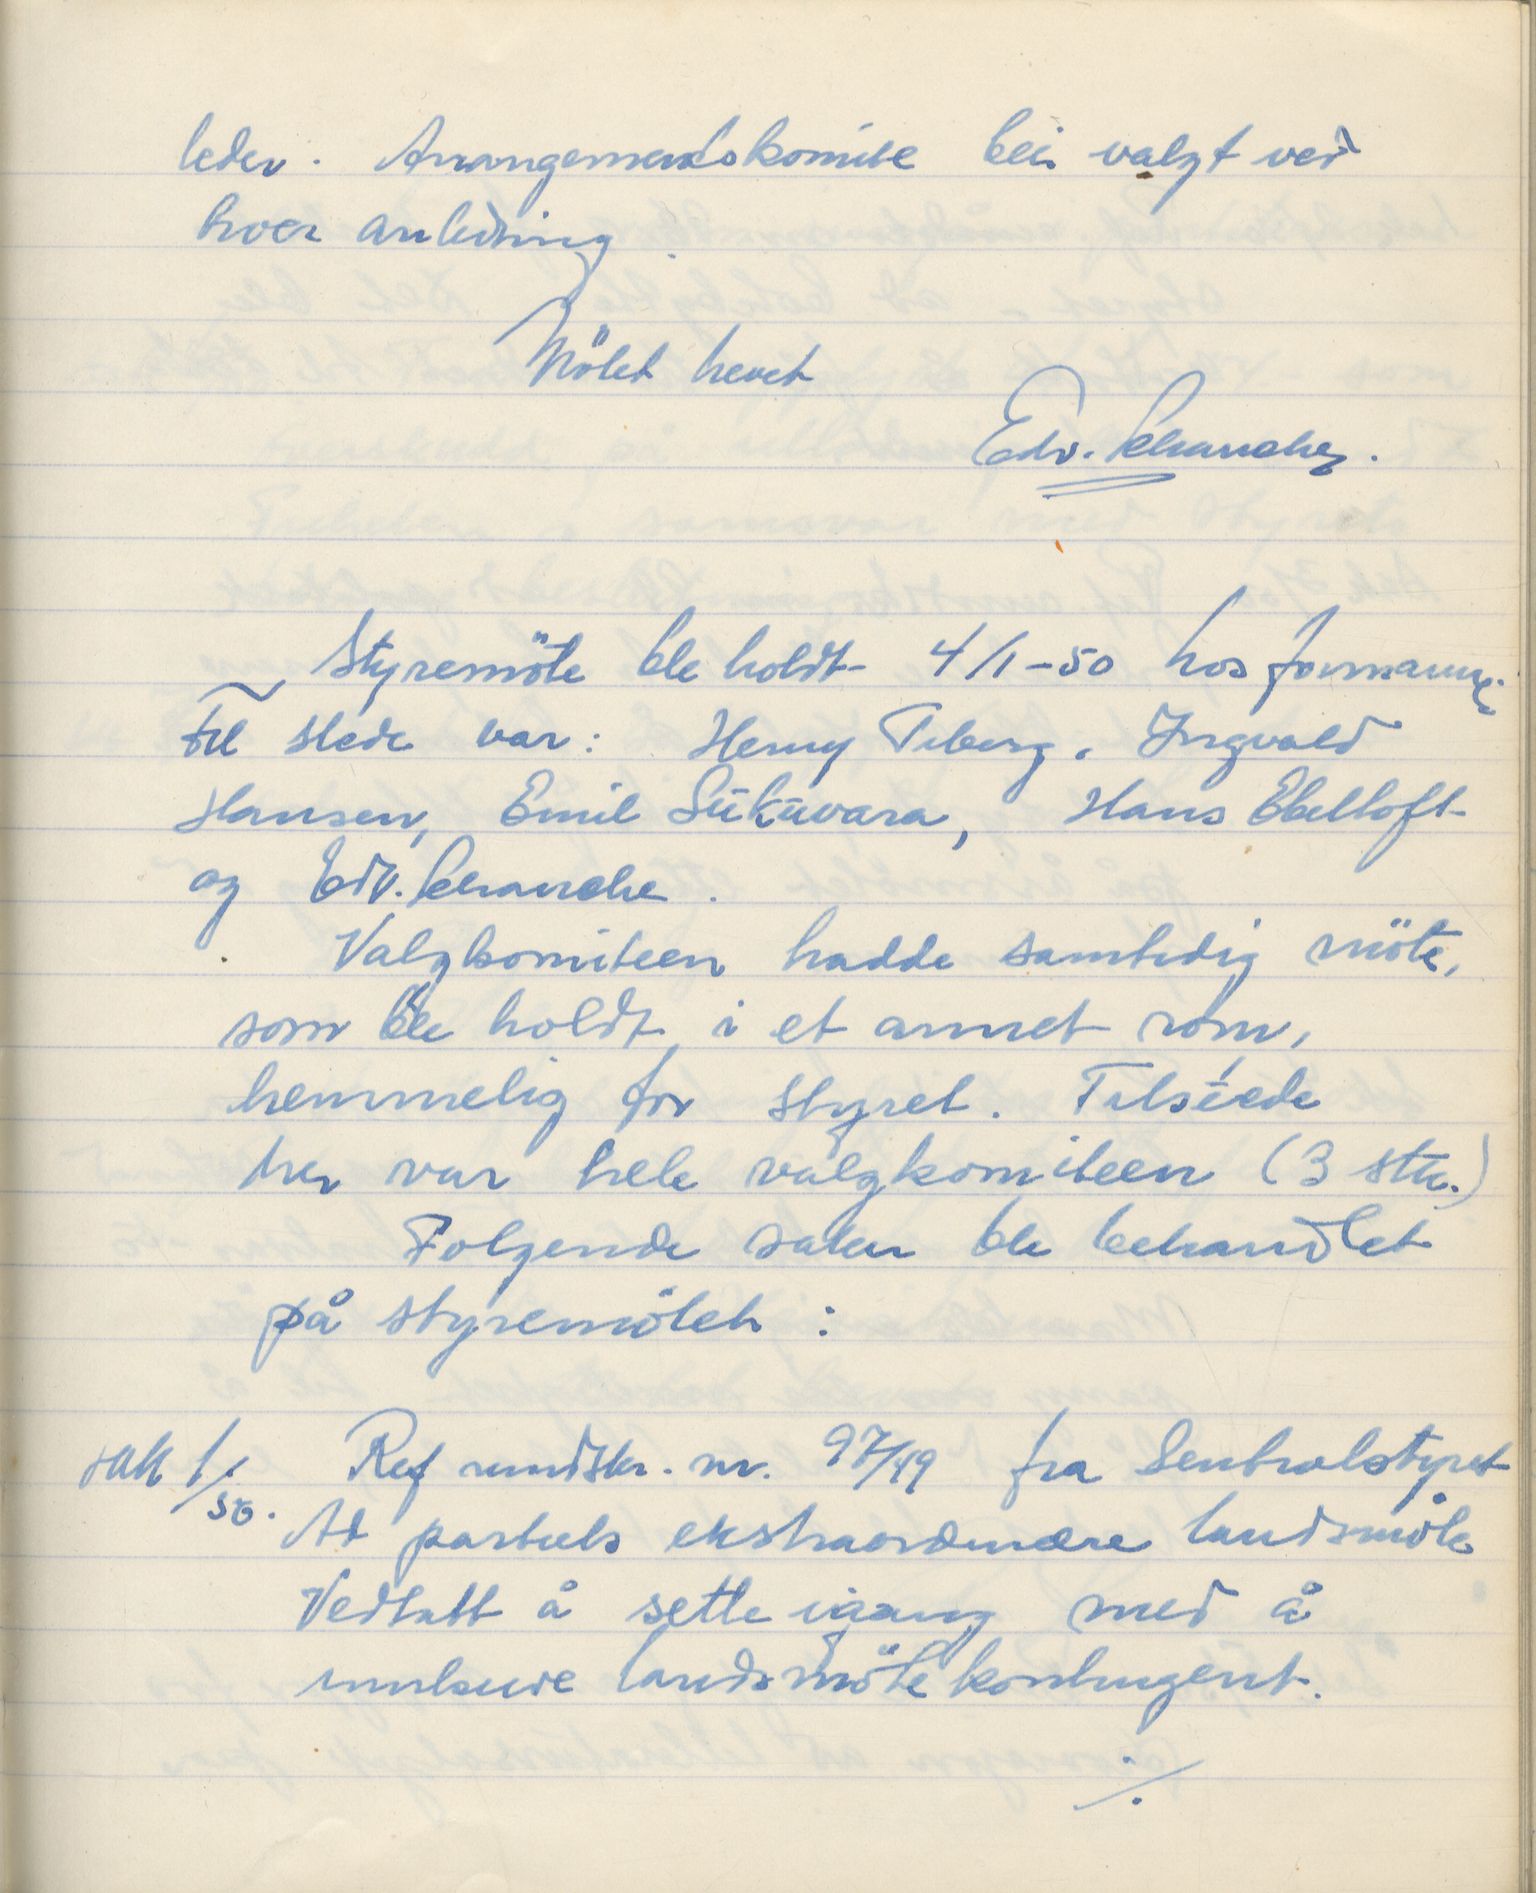 leder. Arrangementskomite blir valgt ved
hver anledning.
Mötet hevet
Edv. Schanche.
Styremöte ble holdt 4/1-50 hos formannen.
Til stede var: Henry Tiberg, Ingvald
Hansen, Emil Siikavara, Hans Ebeltoft
og Edv. Schanche.
Valgkomiteen hadde samtidig möte,
som ble holdt i et annet rom,
hemmelig for styret. Tilstede
her var hele valgkomiteen (3 stk.)
Folgende saker ble behandlet
på styremötet:
sak 1/50. Ref rundskr. nr. 97/49 fra Sentralstyret
At partiets ekstraordinære landsmöte
Vedtatt å sette igang med å
innkreve landsmötekontingent.
./.